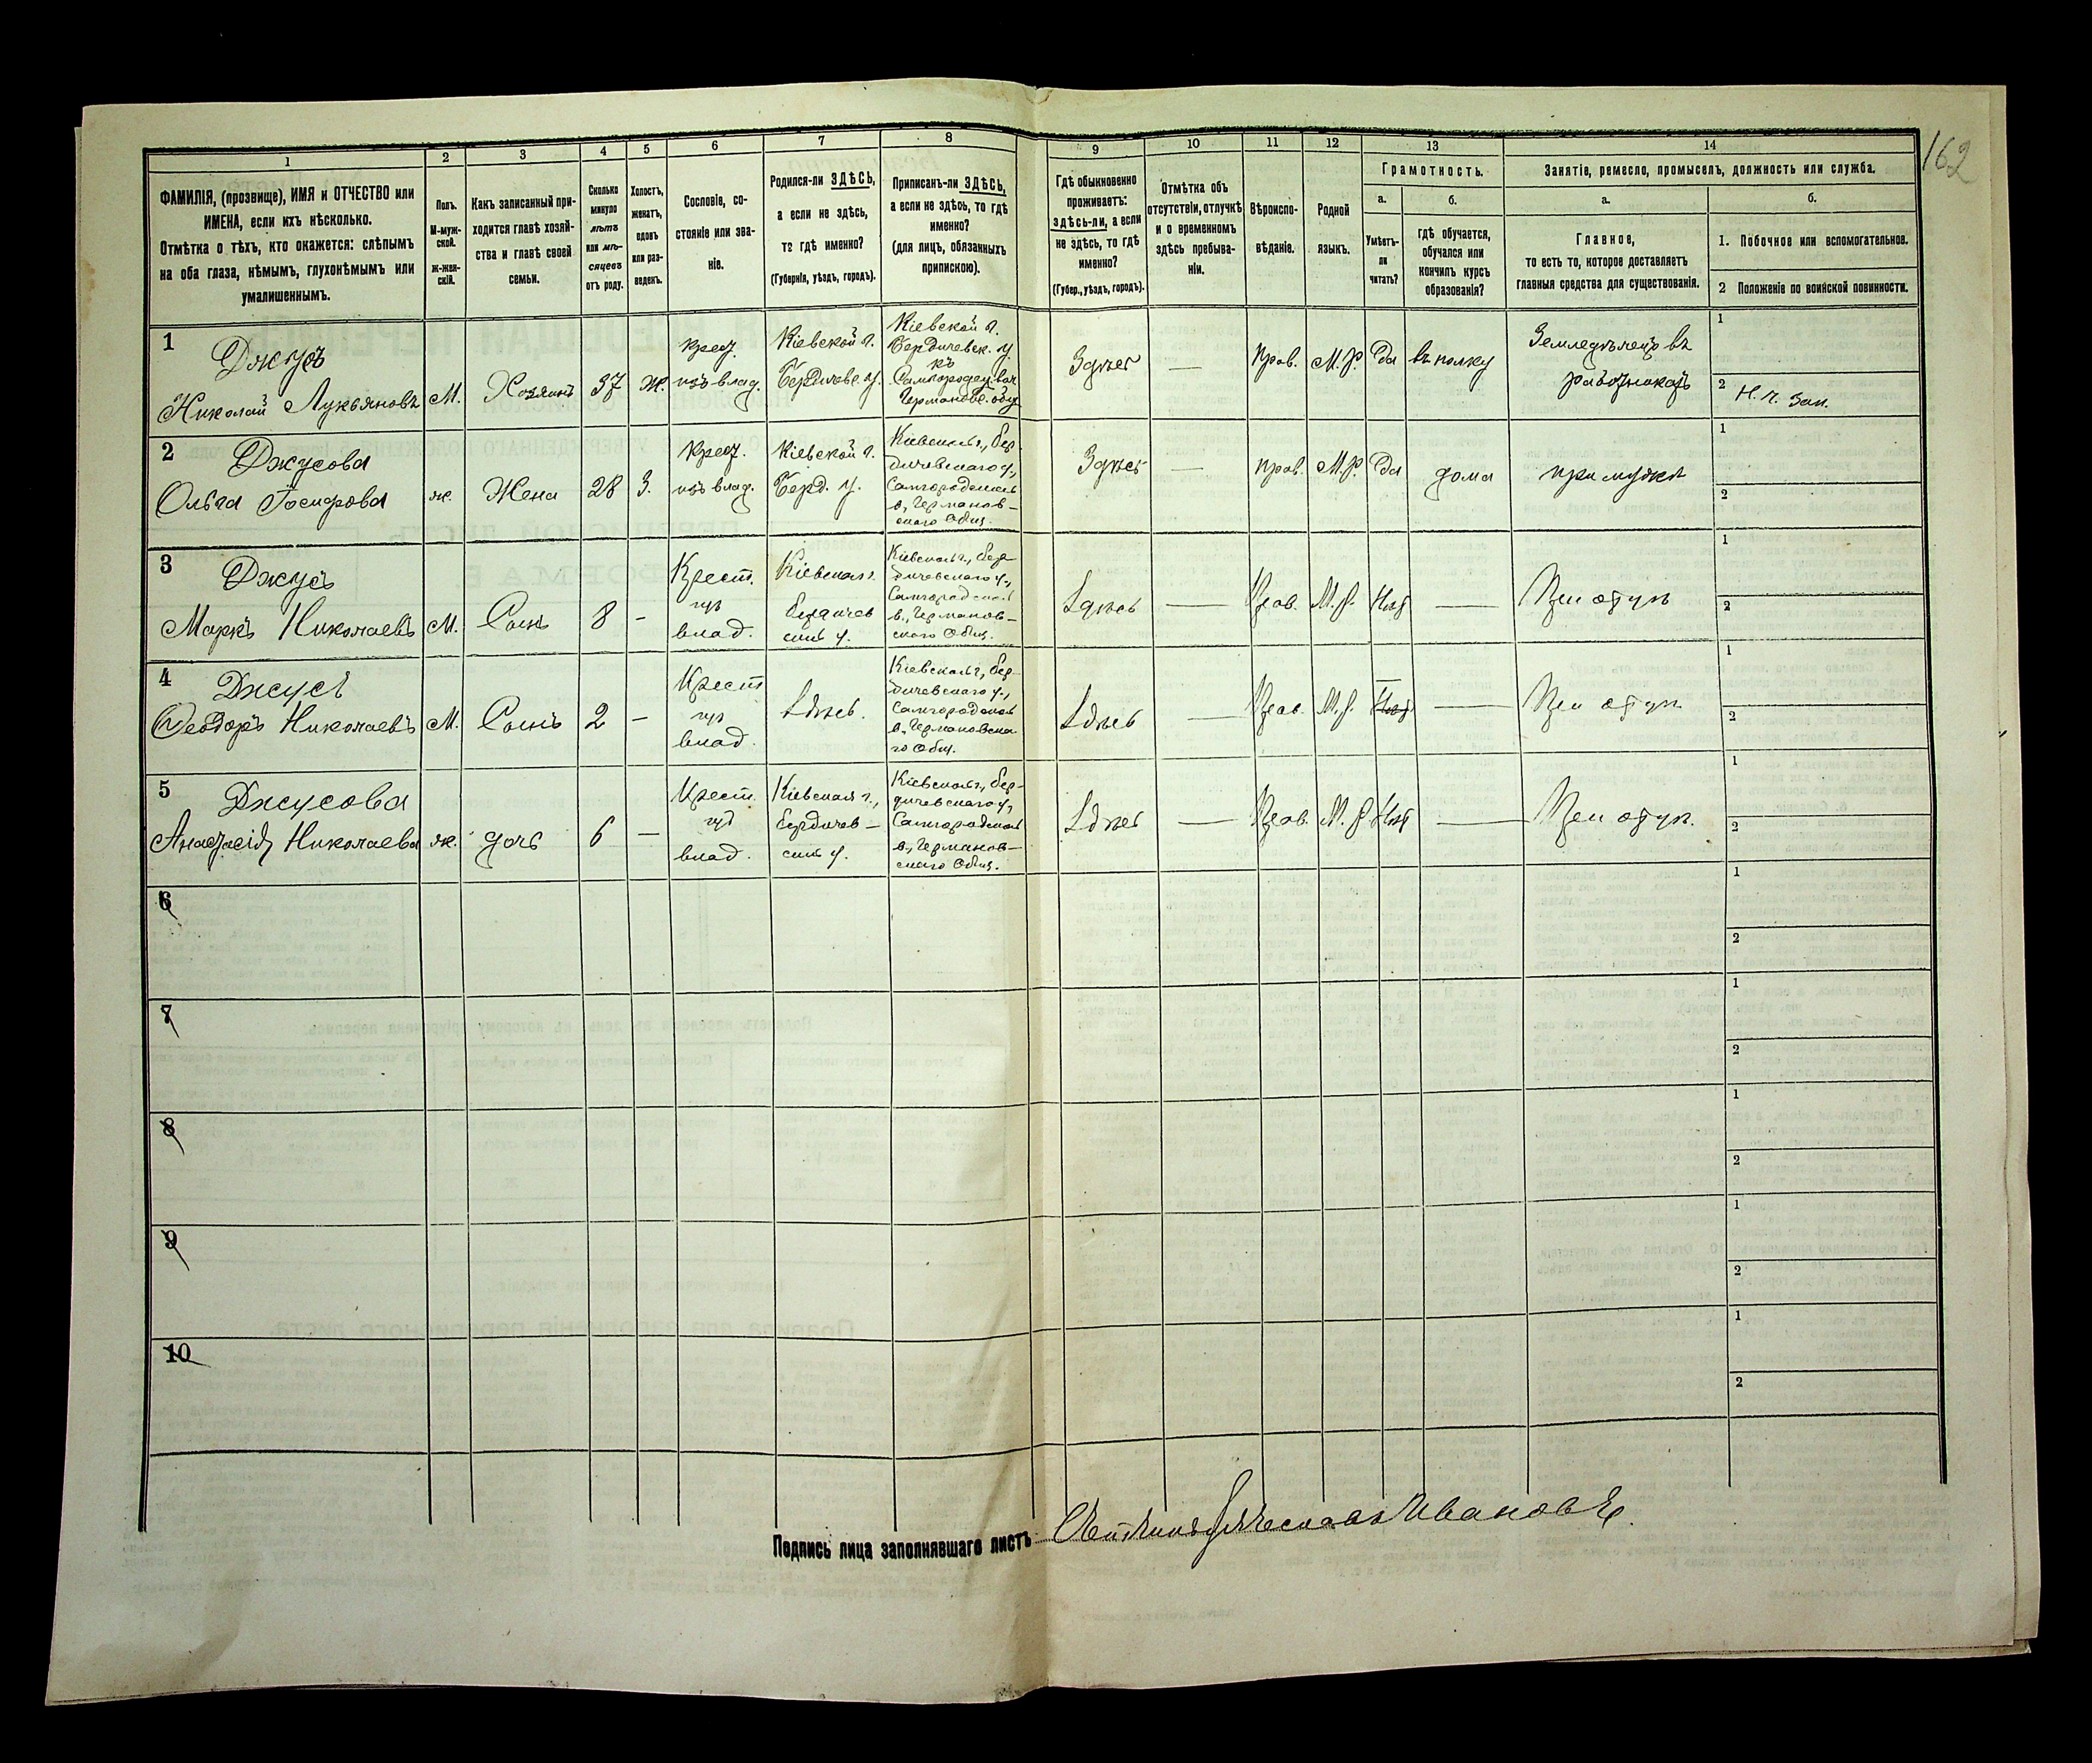 162
1 2 3 4 5 6 7 8 9 10 11 12 13 14
ФАМИЛІЯ, (прозвище), ИМЯ и ОТЧЕСТВО или
ИМЕНА, если ихъ нѣсколько.
Отмѣтка о тѣхъ, кто окажется: слѣпымъ
на оба глаза, нѣмымъ, глухонѣмымъ или
умалишеннымъ.
Полъ.
М-муж-
ской.
ж-жен-
скій.
Какъ записанный при-
ходится главѣ хозяй-
ства и главѣ своей
семьи.
Сколько
минуло
лѣтъ
или мѣ-
сяцевъ
отъ роду.
Холостъ,
женатъ,
вдовъ
или раз-
веденъ.
Сословіе, со-
стояніе или зва-
ніе.
Родился-ли ЗДѢСЬ,
а если не здѣсь,
то гдѣ именно?
(Губернія, уѣздъ, городъ).
Приписанъ-ли ЗДѢСЬ,
а если не здѣсь, то гдѣ
именно?
(для лицъ, обязанныхъ
припискою).
Гдѣ обыкновенно
проживаетъ:
здѣсь-ли, а если
не здѣсь, то гдѣ
именно?
(Губер., уѣздъ, городъ).
Отмѣтка объ
отсутствіи, отлучкѣ
и о временномъ
здѣсь пребыва-
ніи.
Вѣроиспо-
вѣданіе.
Родной
языкъ.
Грамотность.
а.
Умѣетъ-
ли
читать?
б.
гдѣ обучается,
обучался или
кончилъ курсъ
образованія?
Занятіе, ремесло, промыселъ, должность или служба.
а.
Главное,
то есть то, которое доставляетъ
главныя средства для существованія.
б.
1. Побочное или вспомогательное.
2 Положеніе по воинской повинности.
1
Джусъ
Николай Лукьяновъ
М.
Хозяинъ
37
Ж.
Крест.
изъ влад.
Кіевской г.
Бердичевс. у.
Кіевской г.
Бердичевск. у.
къ
Самгородец. вол.
Германовс. общ
Здѣсь
—
Прав.
М. Р.
Да
въ полку
Земледѣлецъ въ
работникахъ
1
2 Н. ч. зап.
2
Джусова
Ольга Іосифова
ж.
Жена
28
З.
Крест.
изъ влад.
Кіевской г.
Берд. у.
Кіевская г., бер-
дичевскаго у.,
Самгородской
в., Германов-
скаго Общ.
Здѣсь
—
Прав.
М. Р.
Да
дома
при мужѣ
1
2
3
Джусъ
Маркъ Николаевъ
М.
Сынъ
8
-
Крест.
изъ
влад.
Кіевская г.
бердичев
скій у.
Кіевская г., бер-
дичевскаго у.,
Самгородской
в., Германов-
скаго Общ.
Здѣсь
—
Прав.
М. Р.
Нѣт
—
При отцѣ
1
2
4
Джусъ
Ѳеодоръ Николаевъ
М.
Сынъ
2
-
Крест
изъ
влад.
Здѣсь.
Кіевская г., бер-
дичевскаго у.,
Самгородской
в., Германовска-
го Общ.
Здѣсь
—
Прав.
М. Р.
Нѣт
—
При отцѣ
1
2
5
Джусова
Анастасія Николаева
ж.
дочь
6
—
Крест.
изъ
влад.
Кіевская г.,
Бердичев-
скій у.
Кіевская г., бер-
дичевскаго у,
Самгородской
в., Германов-
скаго Общ.
Здѣсь
—
Прав.
М. Р.
Нѣт
—
При отцѣ.
1
2
6
1
2
7
1
2
8
1
2
9
1
2
10
1
2
Подпись лица заполнявшаго листъ
Ивановъ